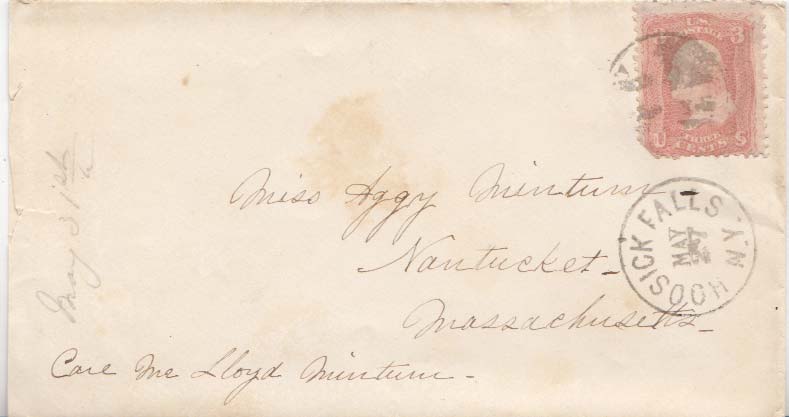 U.S. POSTAGE 3
U THREE CENTS S
Miss Aggy Minturn
Nantucket-
Massachusetts-
Care Mr Lloyd Minturn-
HOOSICK FALLS N.Y.
MAY
27
May 31st